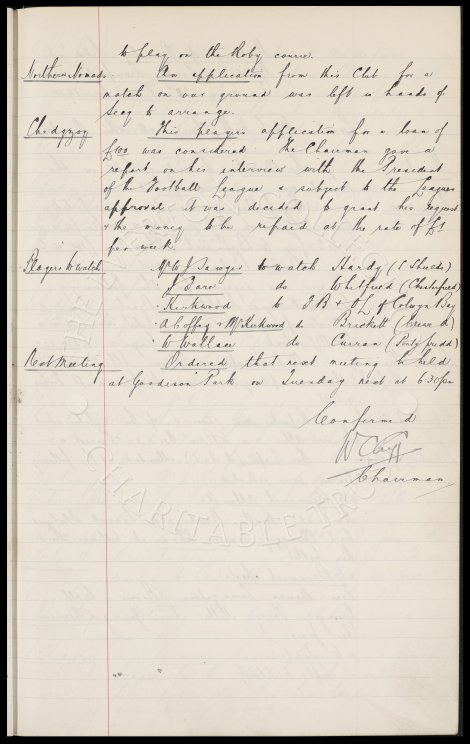 to play on the Roby course.
Northern Nomads. An application from this Club for a
match on our ground was left in hands of
Secy to arrange.
Chedgzoy This players application for a loan of
£100 was considered. The Chairman gave a
report on his interview with the President
of the Football League & subject to the Leagues
approval it was decided to grant his request
& the money to be repaid at the rate of £1
per week.
Players to watch Mr W J Sawyer to watch Hardy (S Shields)
" J Bare do Whitfield (Chesterfield)
" Kirkwood to I B & O L of Colwyn Bay
" A Coffey & Mr Kirkwood do Brickett (Crewe A)
" W Wallace do Curran (Pontypridd)
Next Meeting Ordered that next meeting be held
at Goodison Park on Tuesday next at 6.30 pm
Confirmed
W C Cuff
Chairman
CHARITABLE TRUST